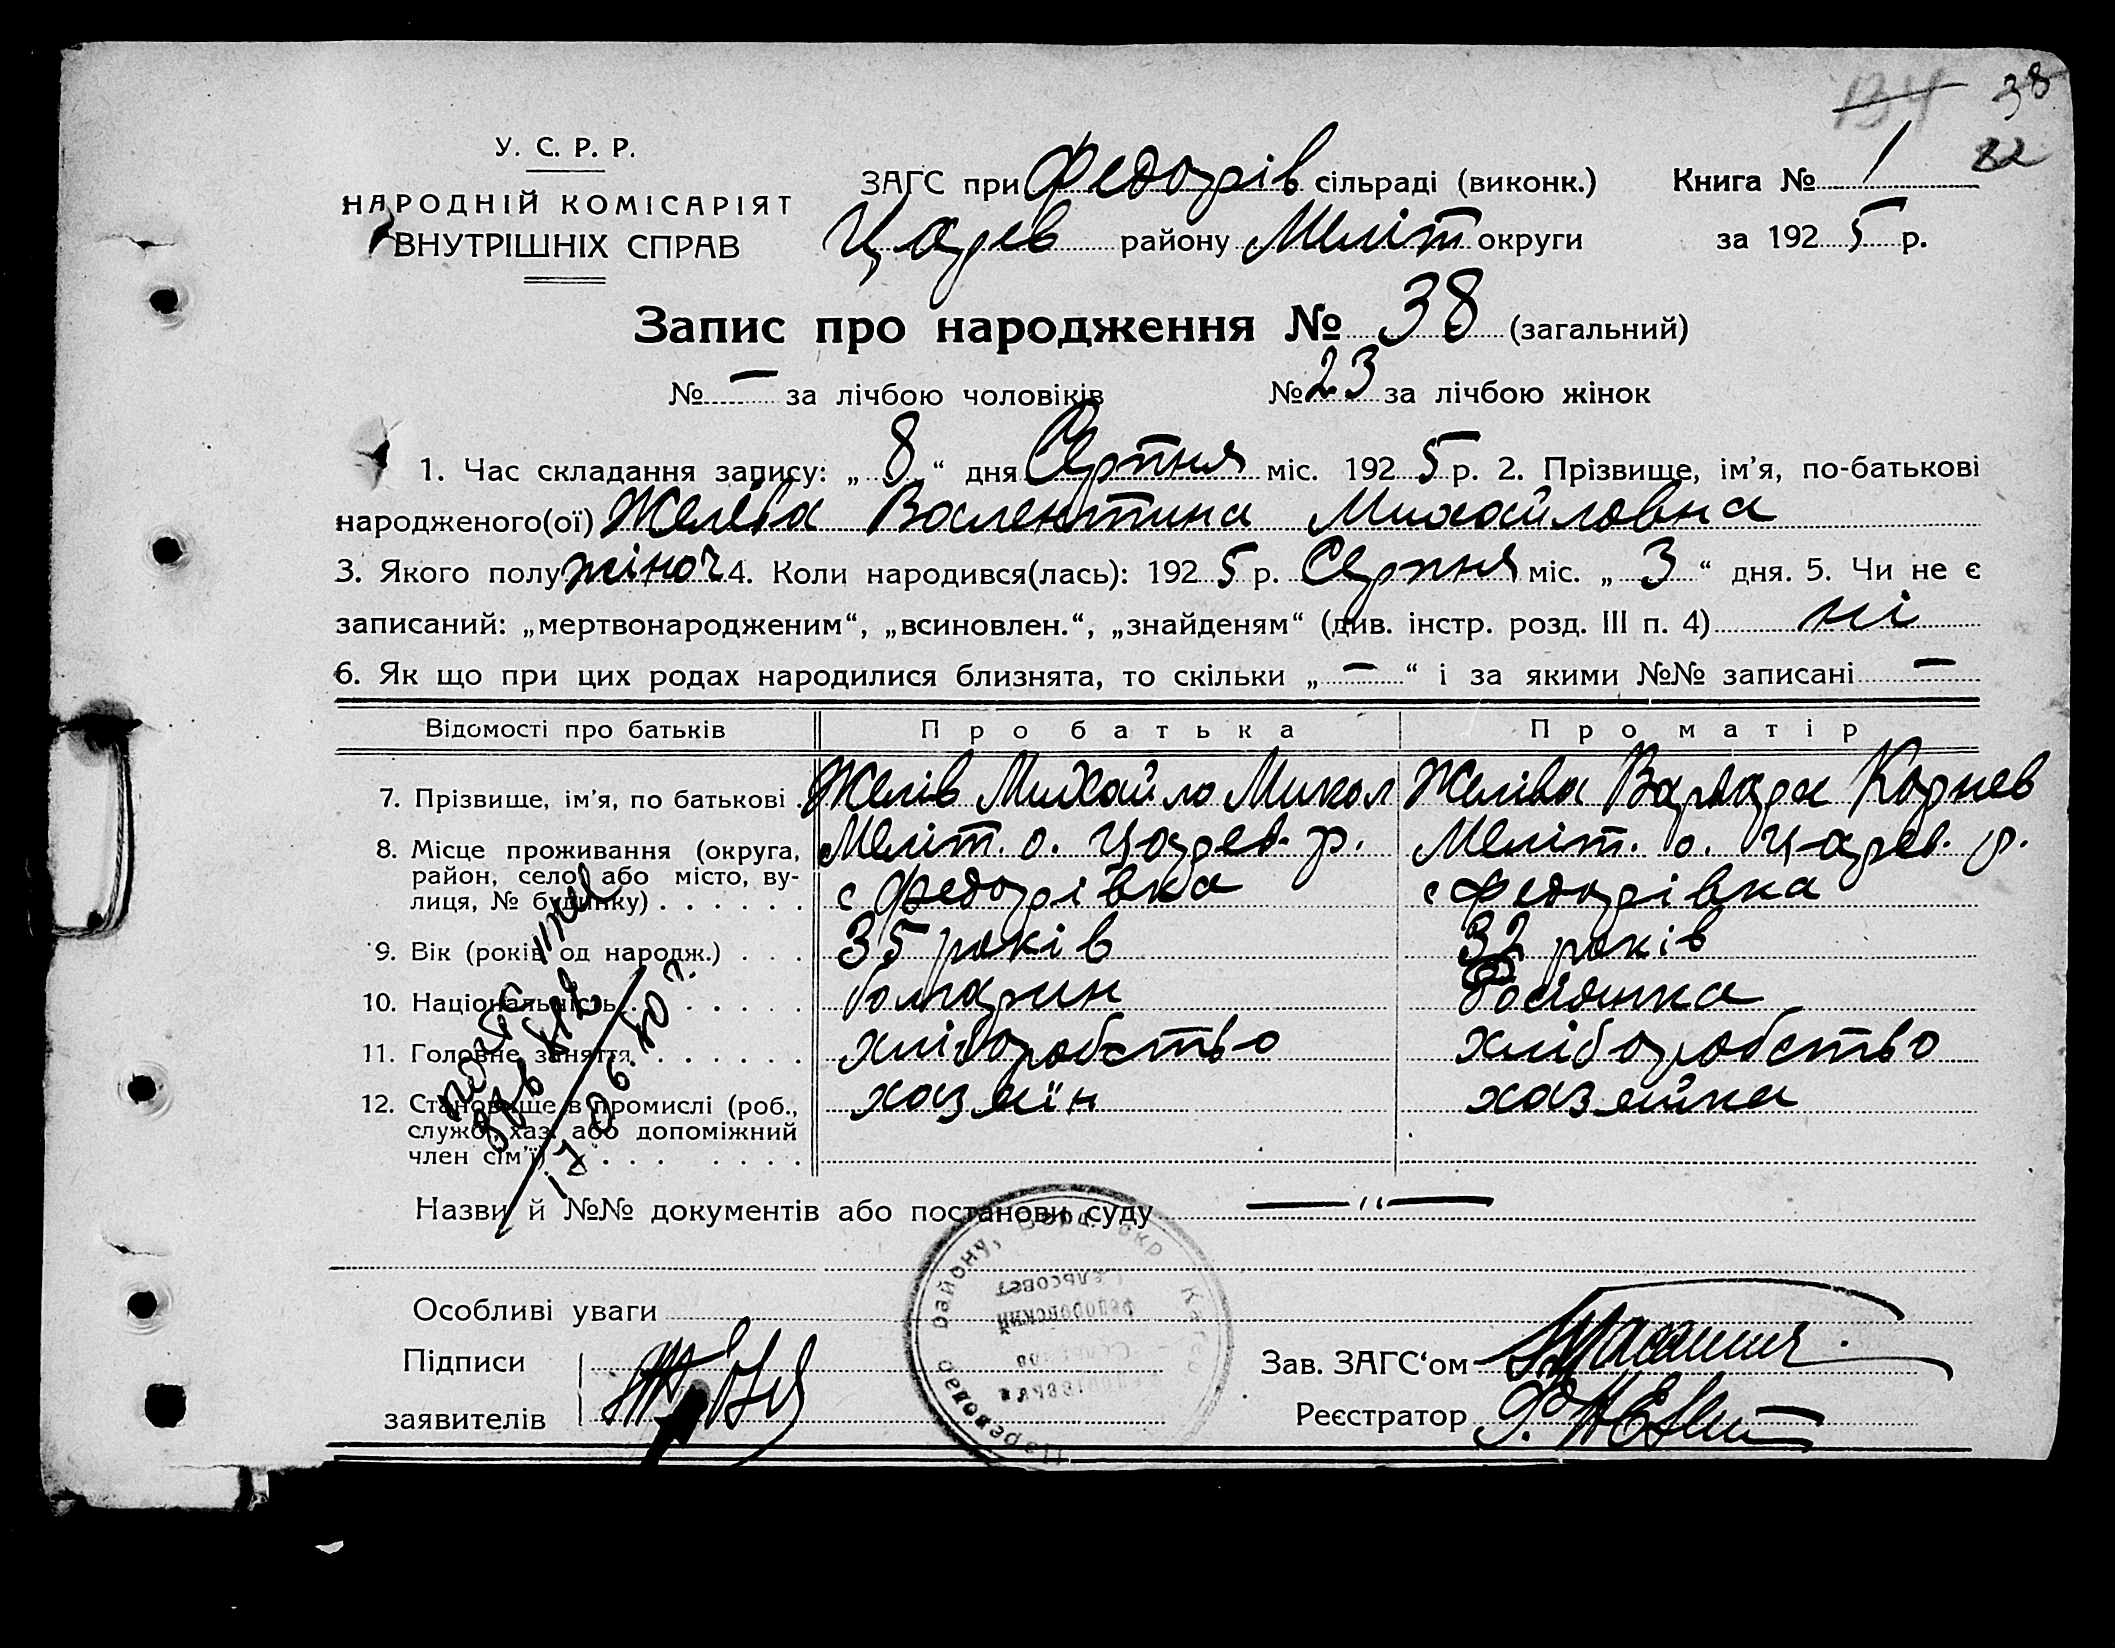 134 38
82
У. С. Р. Р.
НАРОДНІЙ КОМІСАРІЯТ
ВНУТРІШНІХ СПРАВ
ЗАГС при Федорів сільраді (виконк.) Книга № 1
Царев району Меліт округи за 1925 р.
Запис про народження № 38 (загальний)
№ — за лічбою чоловіків № 23 за лічбою жінок
1. Час складання запису: „8“ дня Серпня міс. 1925 р. 2. Прізвище, ім’я, по-батькові
народженого(ої) Желіва Валентина Михайловна
3. Якого полу жіноч 4. Коли народився(лась): 1925 р. Серпня міс. „3“ дня. 5. Чи не є
записаний: „мертвонародженим“, „всиновлен.“, „знайденям“ (див. інстр. розд. III п. 4) ні
6. Як що при цих родах народилися близнята, то скільки „—“ і за якими №№ записані —
Відомості про батьків Про батька Про матір
7. Прізвище, ім’я, по батькові . Желів Михайло Микол Желіва Варвара Корнев
8. Місце проживання (округа, Меліт. о. Царев. р. Меліт. о. Царев. р.
район, село або місто, ву-
лиця, № будинку) . . . . . . с Федорівка с Федорівка
9. Вік (років од народж.) . . . 35 років 32 років
10. Національність . . . . . болгарин
11. Головне заняття . . . . . . хліборобство хліборобство
12. Становище в промислі (роб., хазяїн хазяйка
служб., хаз. або допоміжний
член сім’ї) . . . . . . . .
Назви й №№ документів або постанови суду — " —
Особливі уваги
Підписи
заявителів
Зав. ЗАГС‘ом
Реєстратор
району,
Федоровский
Сельсовет